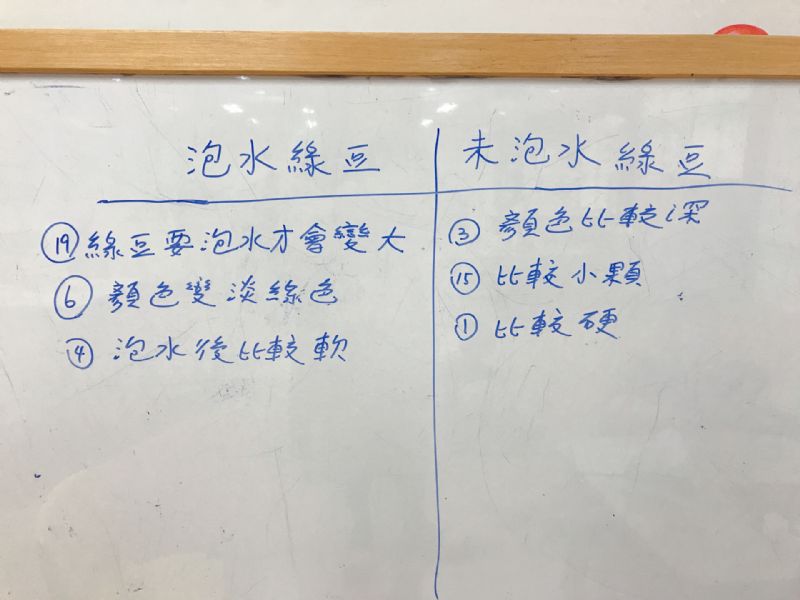 泡水綠豆
⑲綠豆要泡水才會變大
⑥顏色變淡綠色
④泡水後比較軟
未泡水綠豆
③顏色比較深
⑮比較小顆
①比較硬